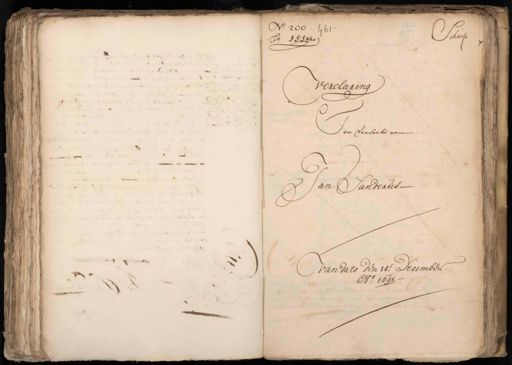 N.º 200
461
Schup
Verclaring
Ten versoecke van
Jan Sanders
Van dato den 14.e December
A.º 1691